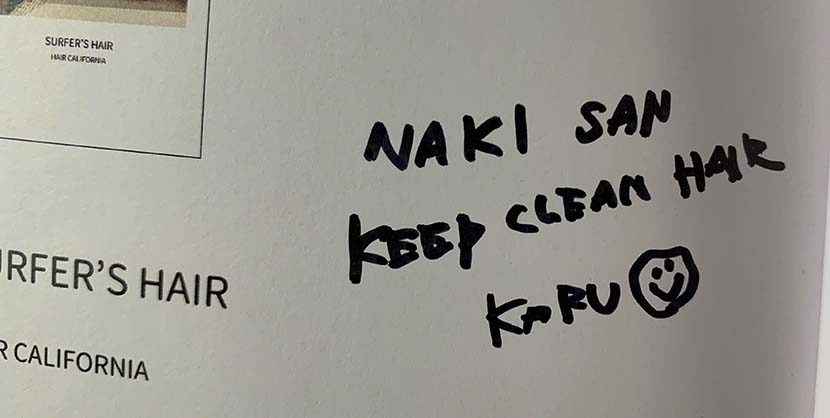 SURFER'S HAIR
HAIR CALIFORNIA
NAKI SAN
KEEP CLEAN HAIR
KARU
URFER'S HAIR
R CALIFORNIA